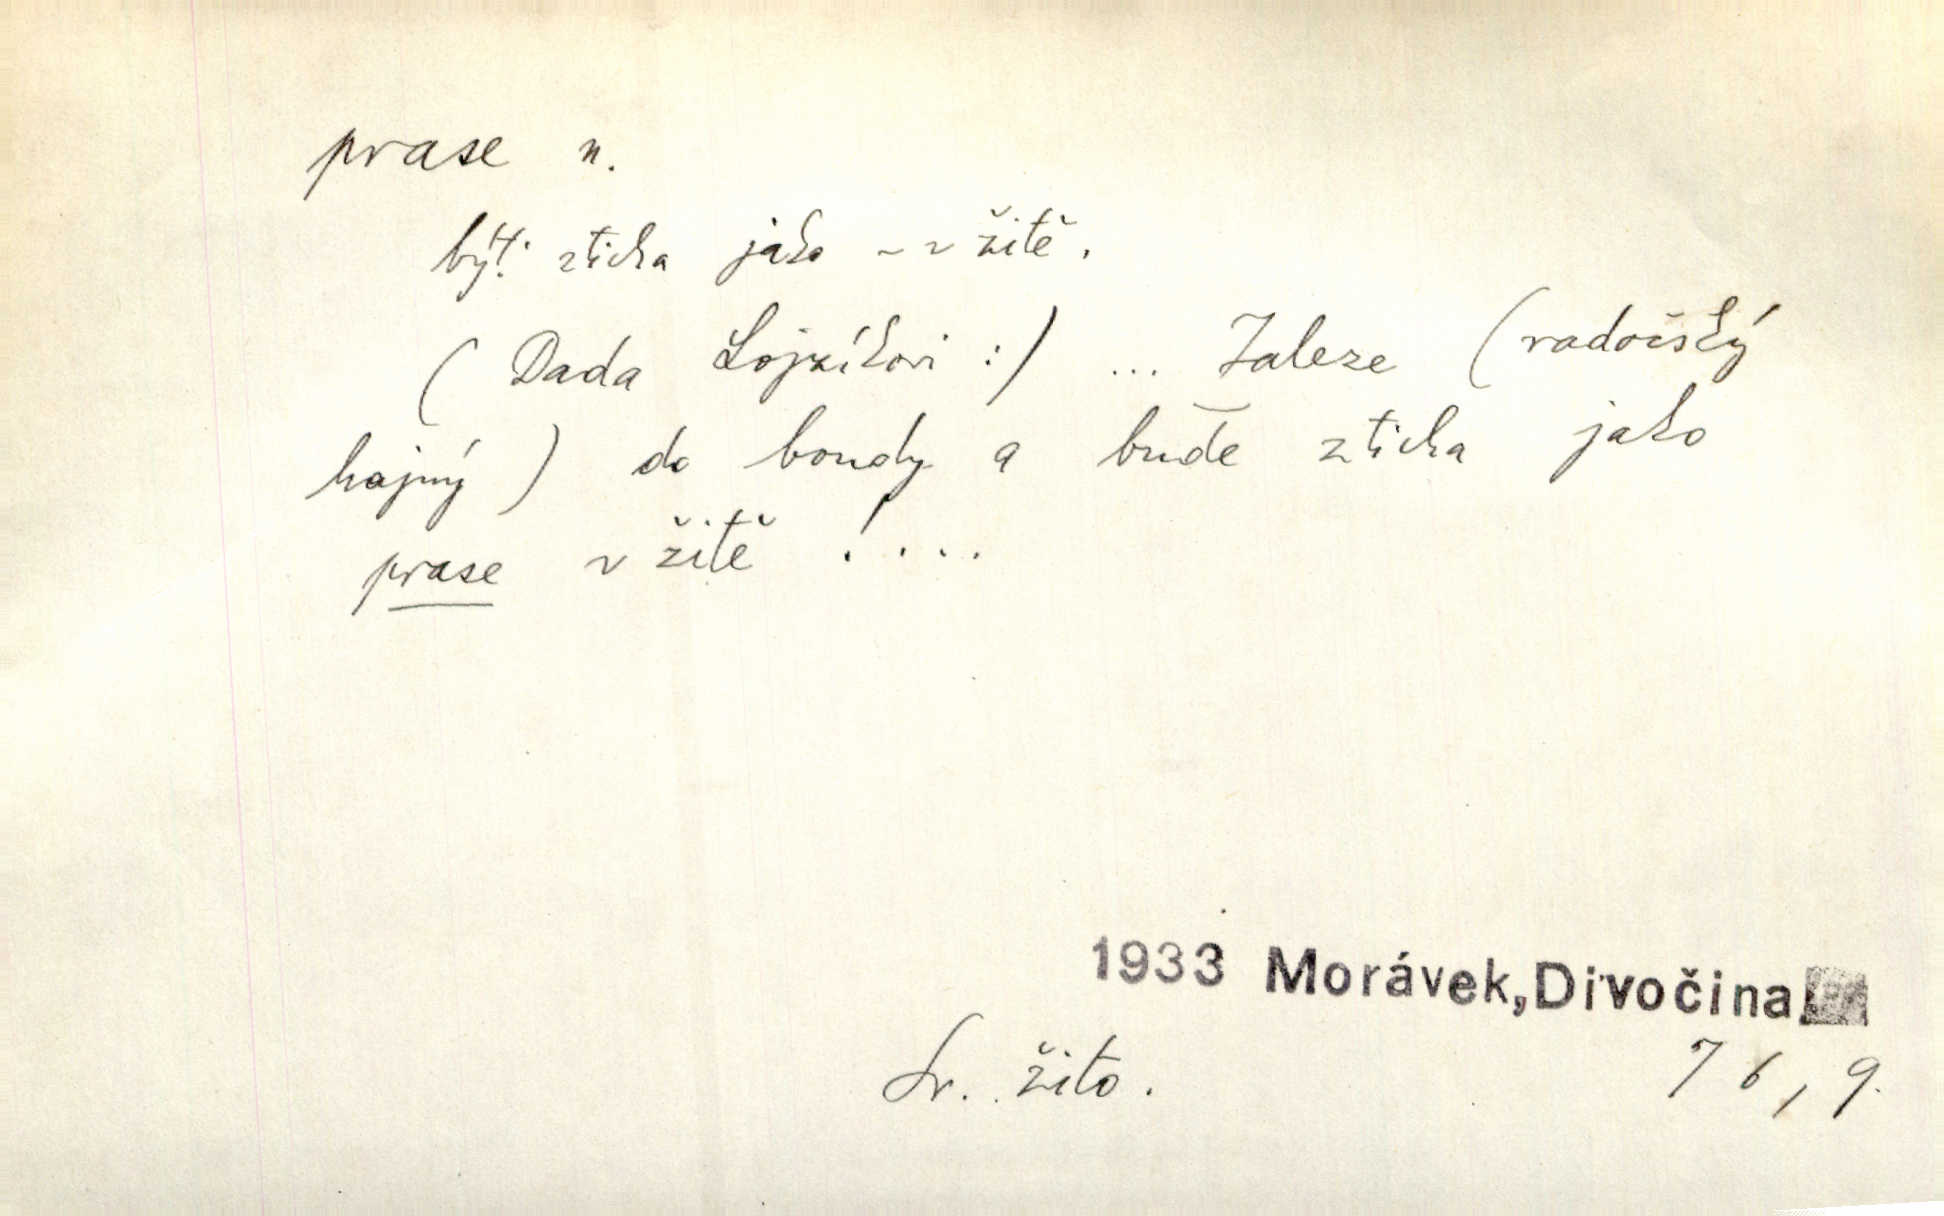 prase n.
býti zticha jako ~ v žitě.
(Dada Lojzíkovi:) ... Zaleze (radošský
hajný) do boudy a bude zticha jako
prase v žitě! ...
1933 Morávek, Divočina
Sr. žito. 76, 9.